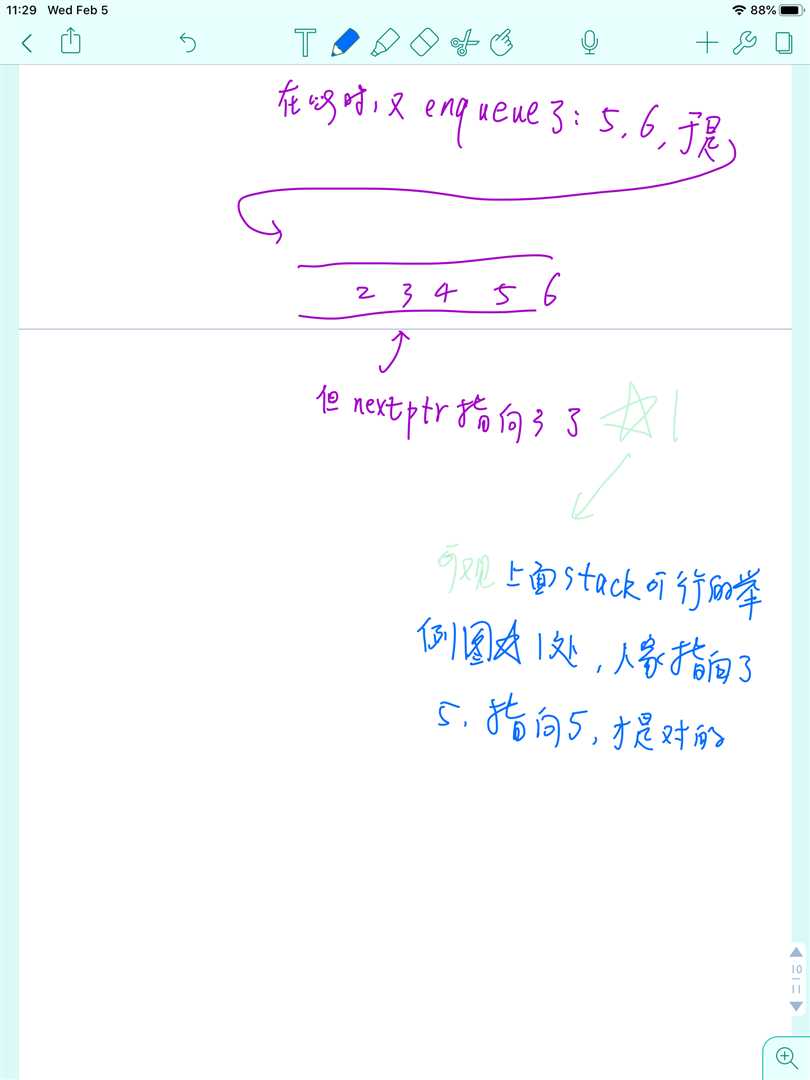 11:29 Wed Feb 5
88%
在此时，又 enqueue了：5，6，于是
2 3 4 5 6
但 nextptr 指向3了 ☆1
可观 上面stack可行的举
例图☆1处，人家指向了
5，指向5，才是对的
10
11